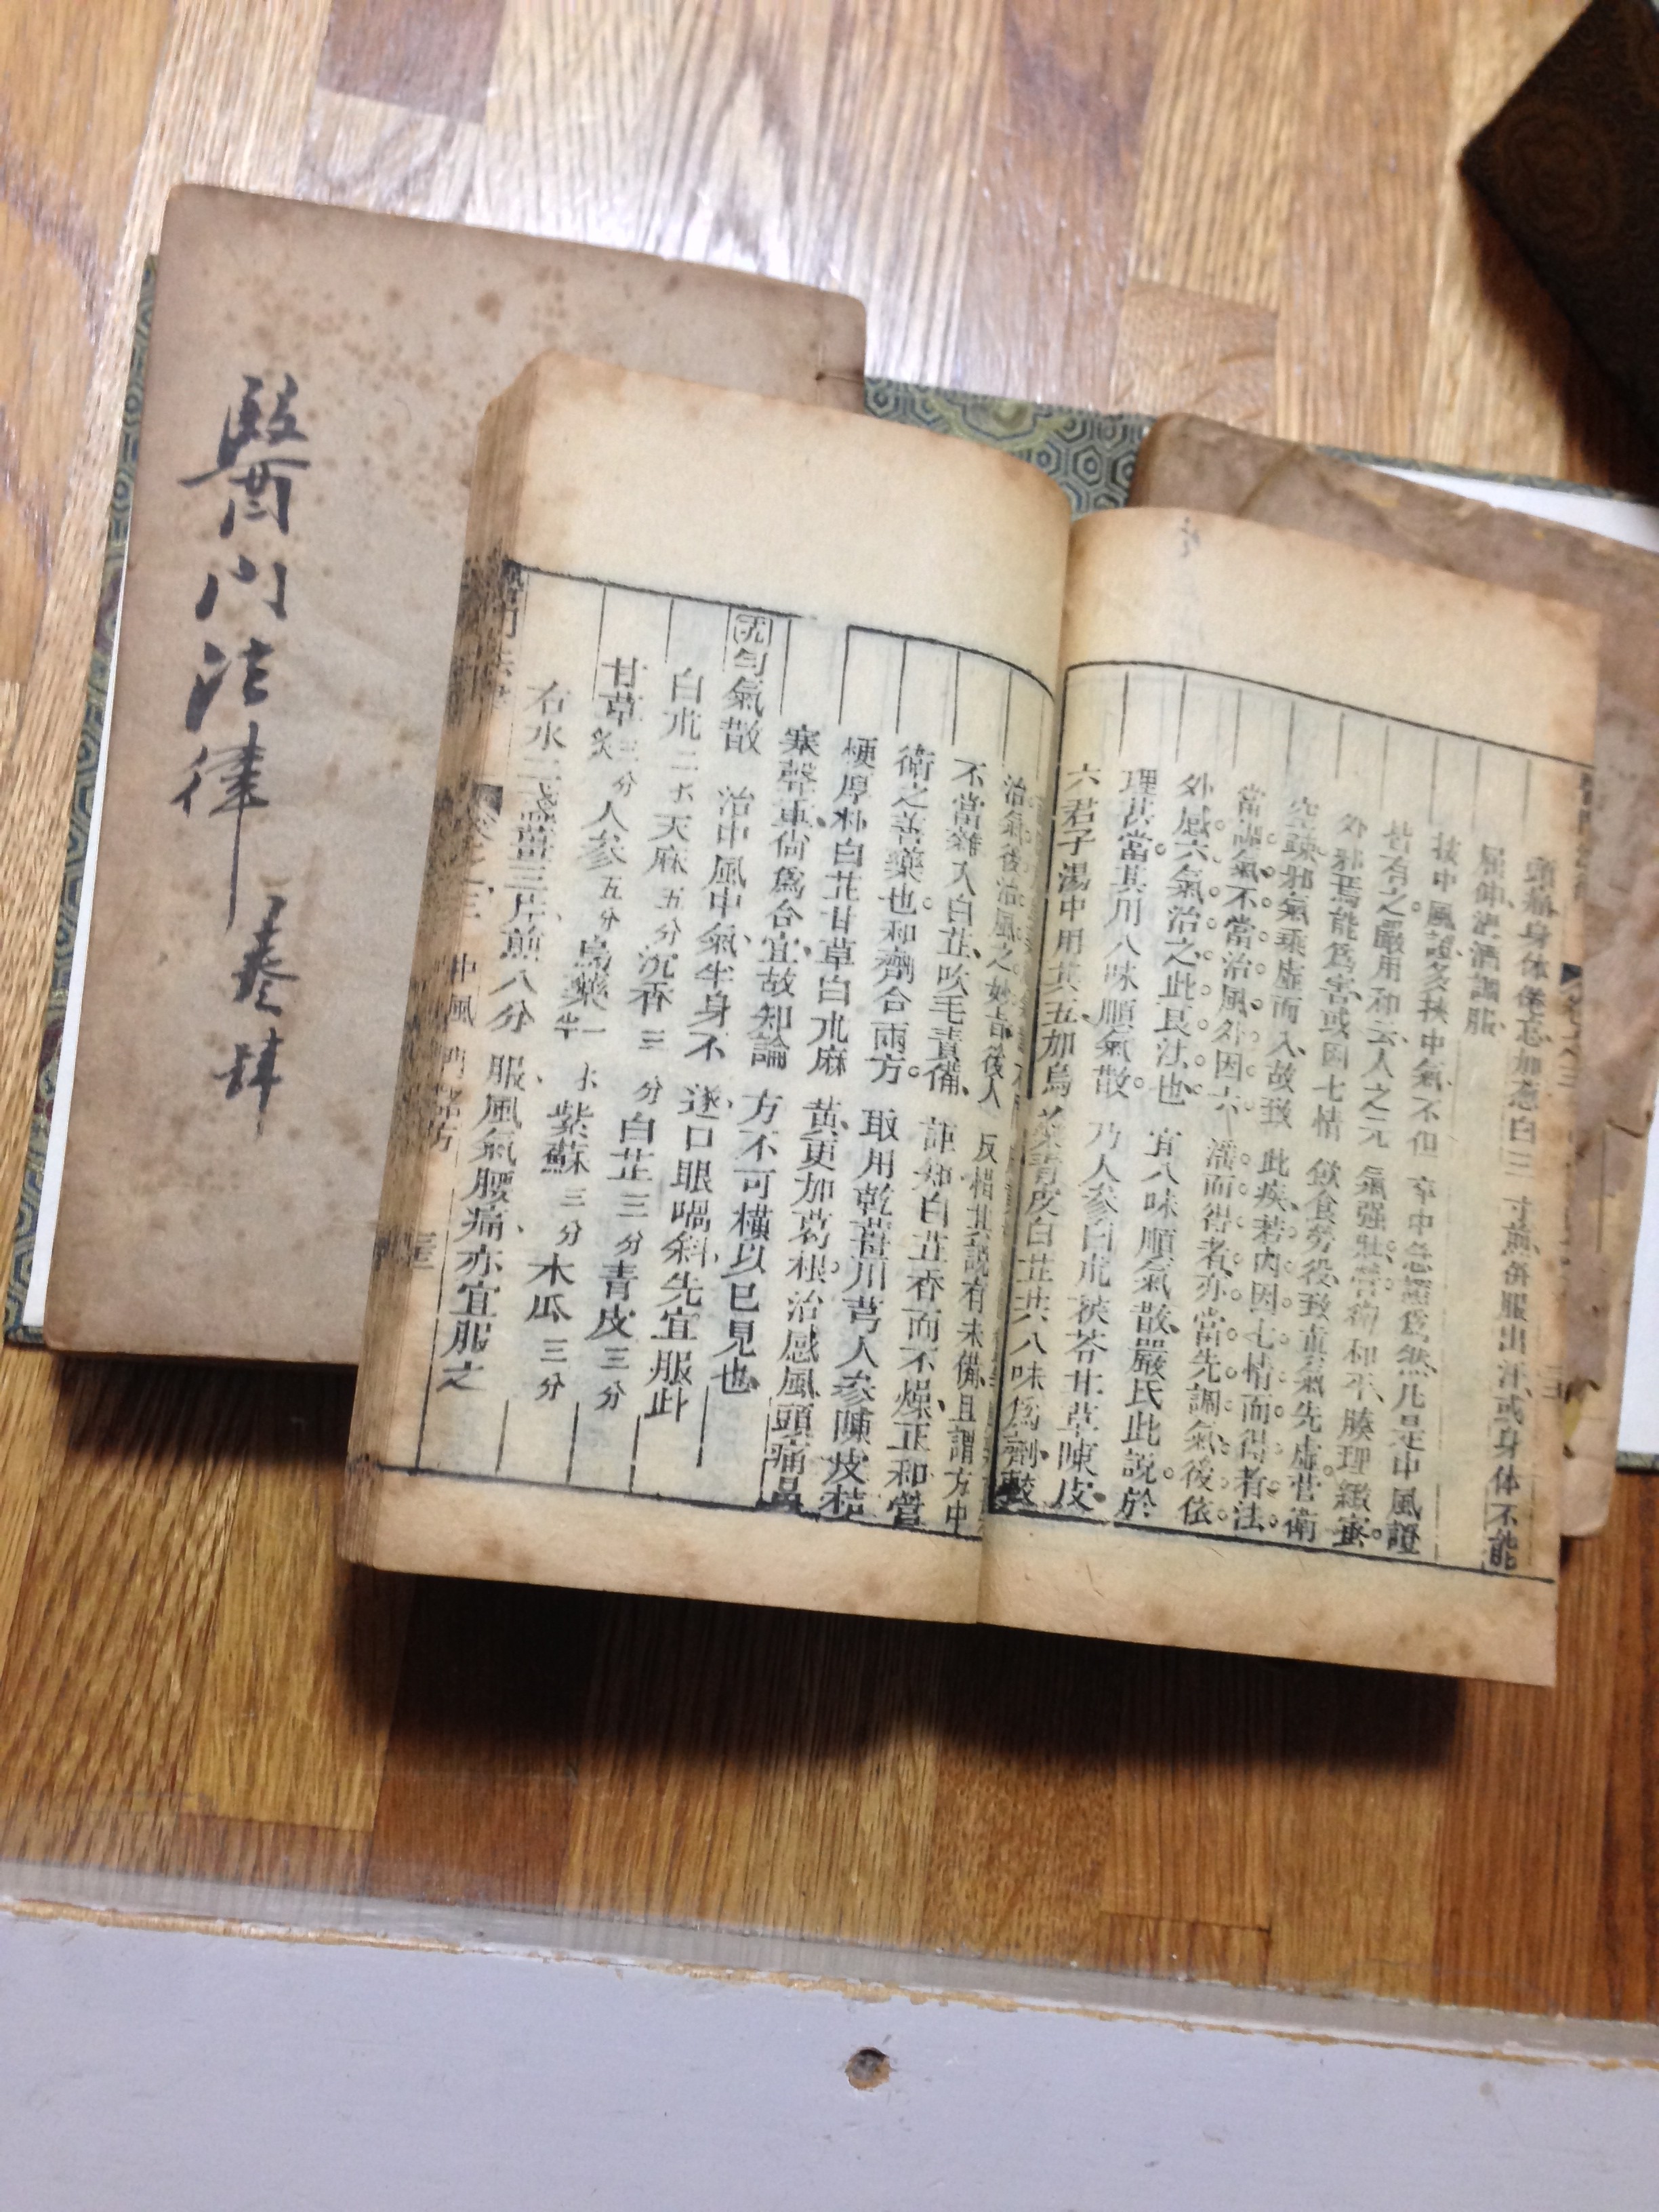 醫門法律 卷肆
頭痛身體倦怠加葱白三寸煎併服出汗或身体不能
屈伸溫酒調服
挟中風證多挾中氣不但卒中急
皆有之嚴用和云人之元氣强壯榮衛和平腠理緻蜜
外邪焉能爲害或因七情飲食勞役致真氣先虛營衛
空疎邪氣乘虛而入故致此疾若内因七情而得者法
當調氣不當治風外因六淫而得者亦當先調氣後依
外感六氣治之此良法也宜八味順氣散嚴氏此説於
理甚當其用八味順氣散乃人參白朮茯苓甘草陳皮
六君子湯中用其五加烏藥青皮白芷共八味爲劑較
治氣後治風之妙旨後人反相其説有未備且謂方中
不當雜入白芷吹毛責備詎知白芷香而不燥正和營
衛之善藥也和劑合兩方取用乾薑川芎人參陳皮桔
梗厚朴白芷甘草白朮麻黄更加葛根治感風頭痛鼻
寒聲重尚爲合宜故知論方不可橫以已見也
勻氣散 治中風中氣半身不遂口眼喎斜先宜服此
白朮二 天麻五分 沉香三分 白芷三分 青皮三分
甘草炙三分 人參五分 烏藥一 半 紫蘇三分 木瓜三分
右水二盞薑三片煎八分服風氣腰痛亦宜服之
卷之三 中風門諸方